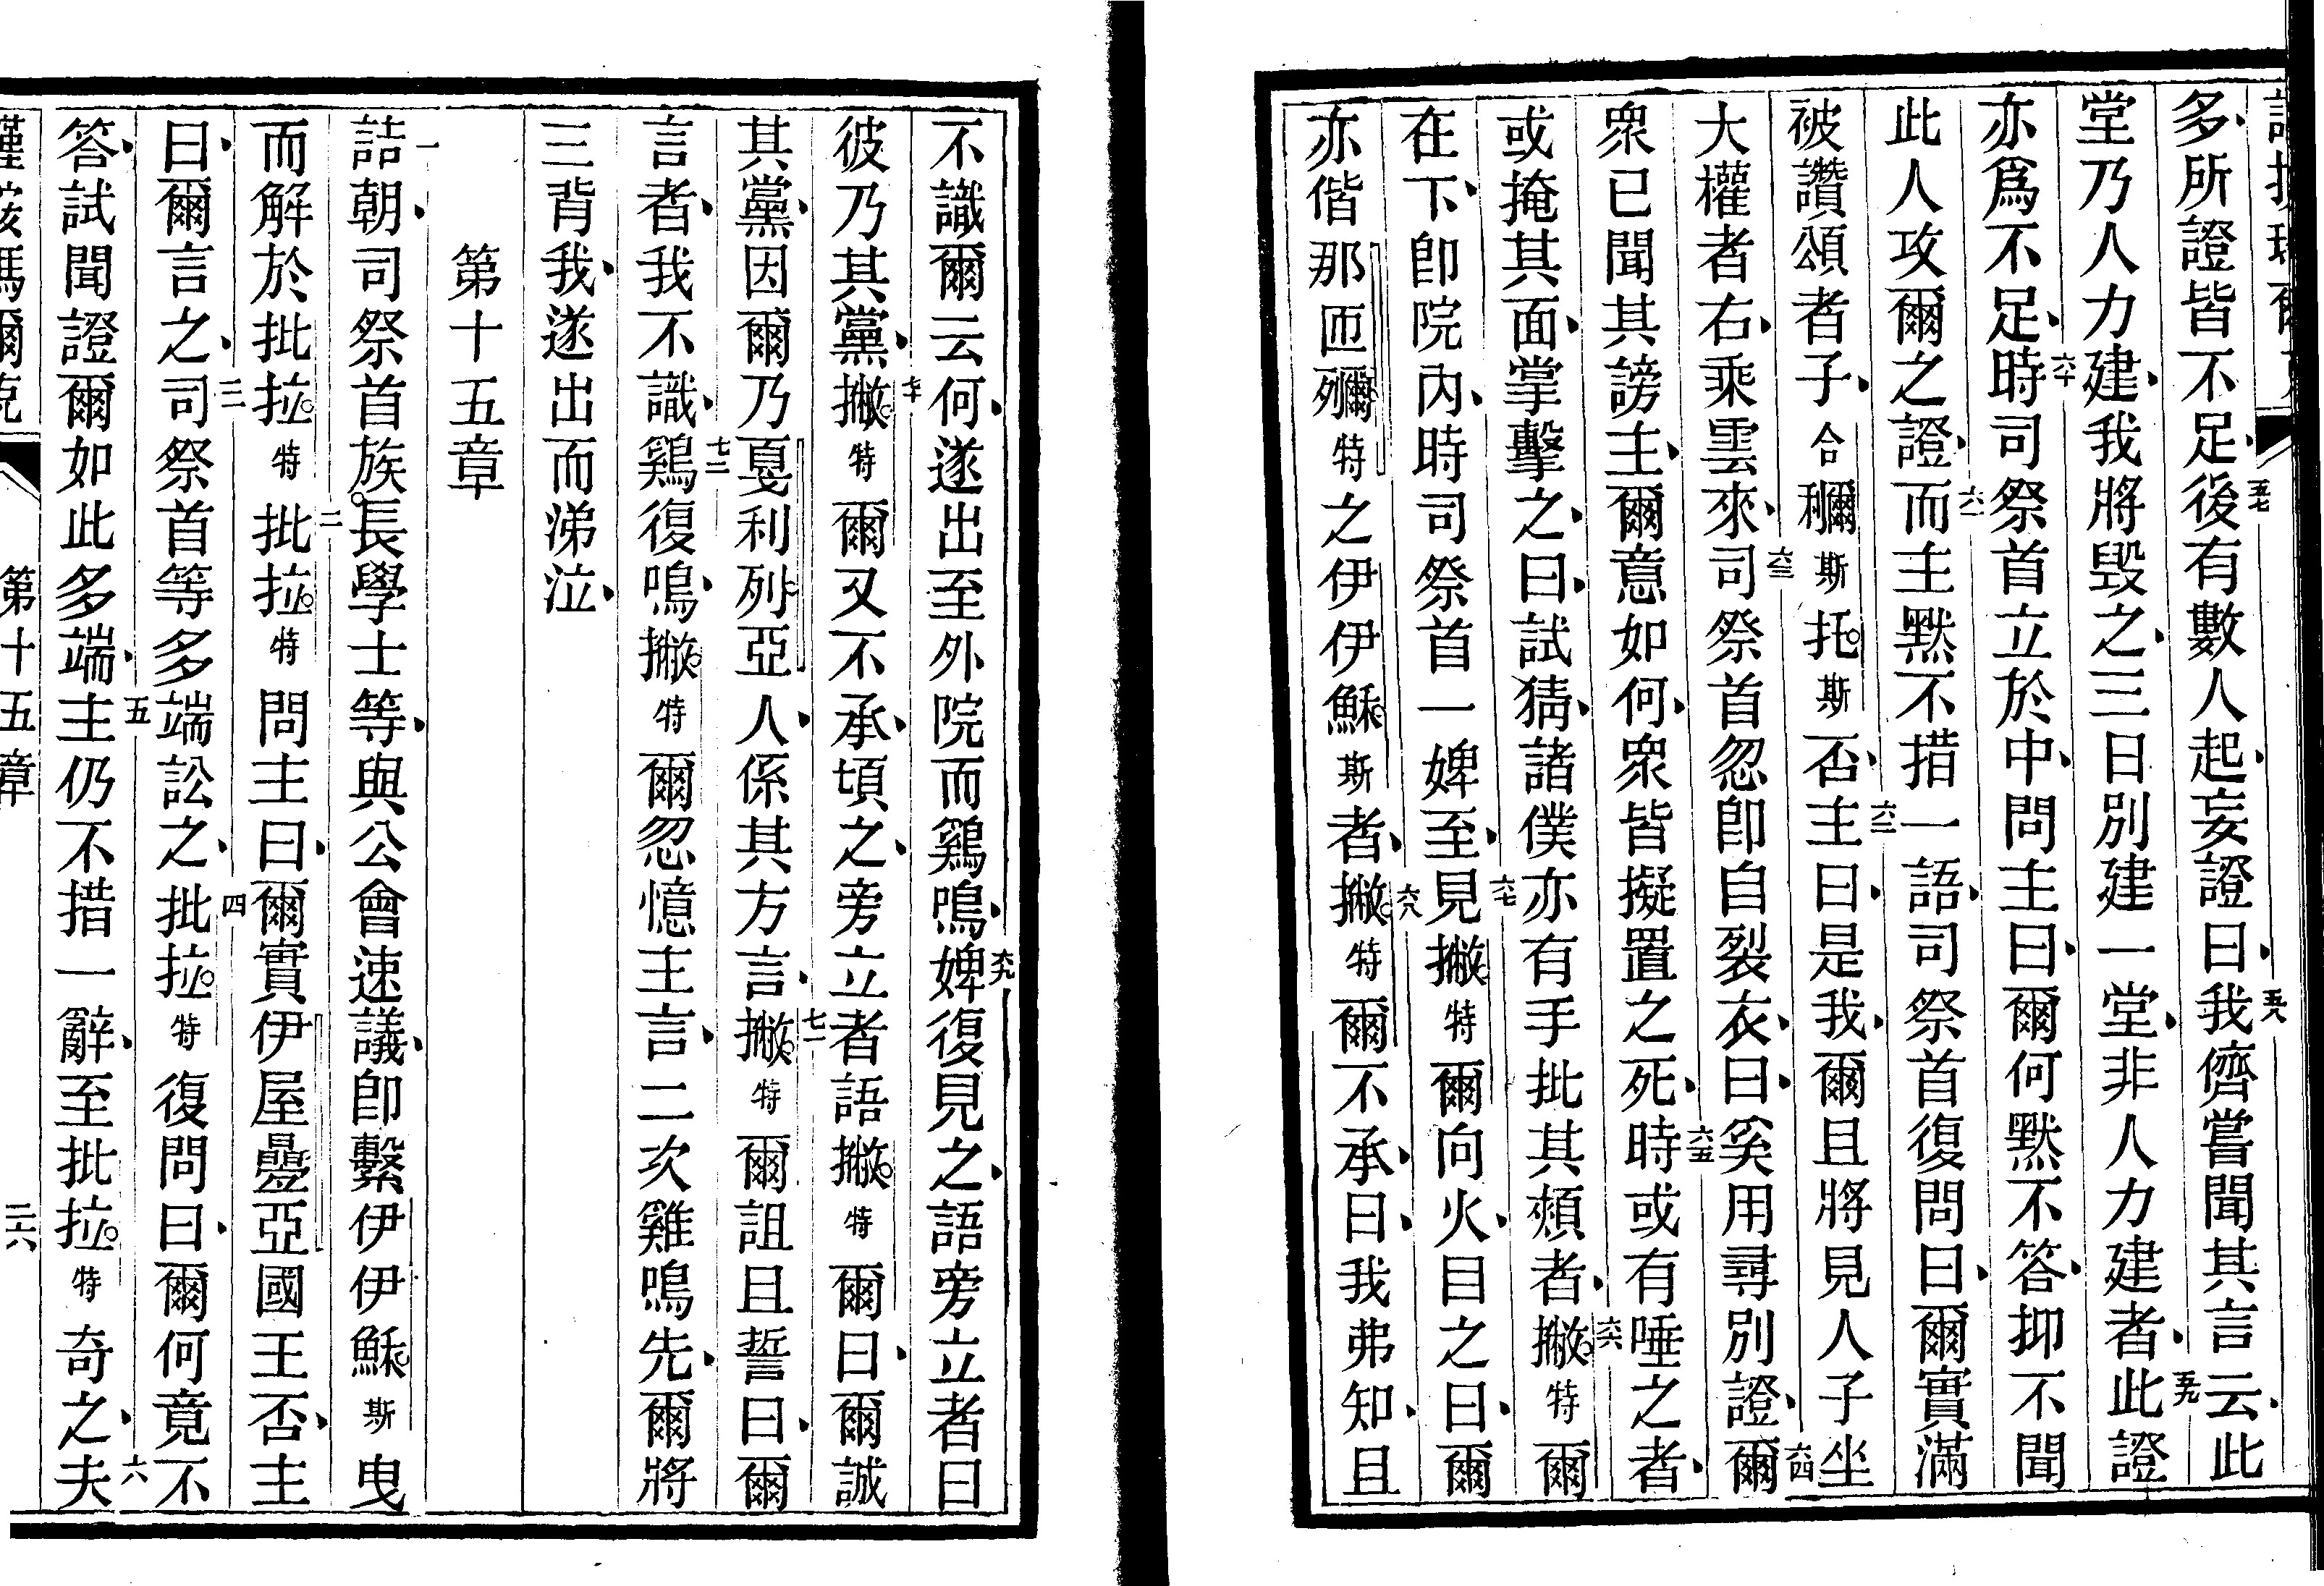 多所證皆不足後五七有數人起妄證曰我五八儕嘗聞其言云此
堂乃人力建我將毀之三日別建一堂非人力建者此五九證
亦爲不足時六十司祭首立於中問主曰爾何默不答抑不聞
此人攻爾之證而六一主默不措一語司祭首復問曰爾實滿
被讚頌者子合利爾斯托斯否主六二曰是我爾且將見人子坐
大權者右乘雲來司六三祭首忽卽自裂衣曰奚用尋別證爾六四
衆已聞其謗主爾意如何衆皆擬置之死時六五或有唾之者
或掩其面掌擊之曰試猜諸僕亦有手批其頰者撇六六特爾
在下卽院內時司祭首一婢至見六七撇特爾向火目之曰爾
亦偕那匝列爾特之伊伊穌斯者撇六八特爾不承曰我弗知且
不識爾云何遂出至外院而鷄鳴婢六九復見之語旁立者曰
彼乃其黨撇七十特爾又不承頃之旁立者語撇特爾曰爾誠
其黨因爾乃戛利列亞人係其方言撇七一特爾詛且誓曰爾
言者我不識鷄七二復鳴撇特爾忽憶主言二次雞鳴先爾將
三背我遂出而涕泣
第十五章
一詰朝司祭首族長學士等與公會速議卽繫伊伊穌斯曳
而解於批拉特批二拉特問主曰爾實伊屋疊亞國王否主
曰爾言之司三祭首等多端訟之批四拉特復問曰爾何竟不
答試聞證爾如此多端主五仍不措一辭至批拉特奇之夫六
第十五章 二六